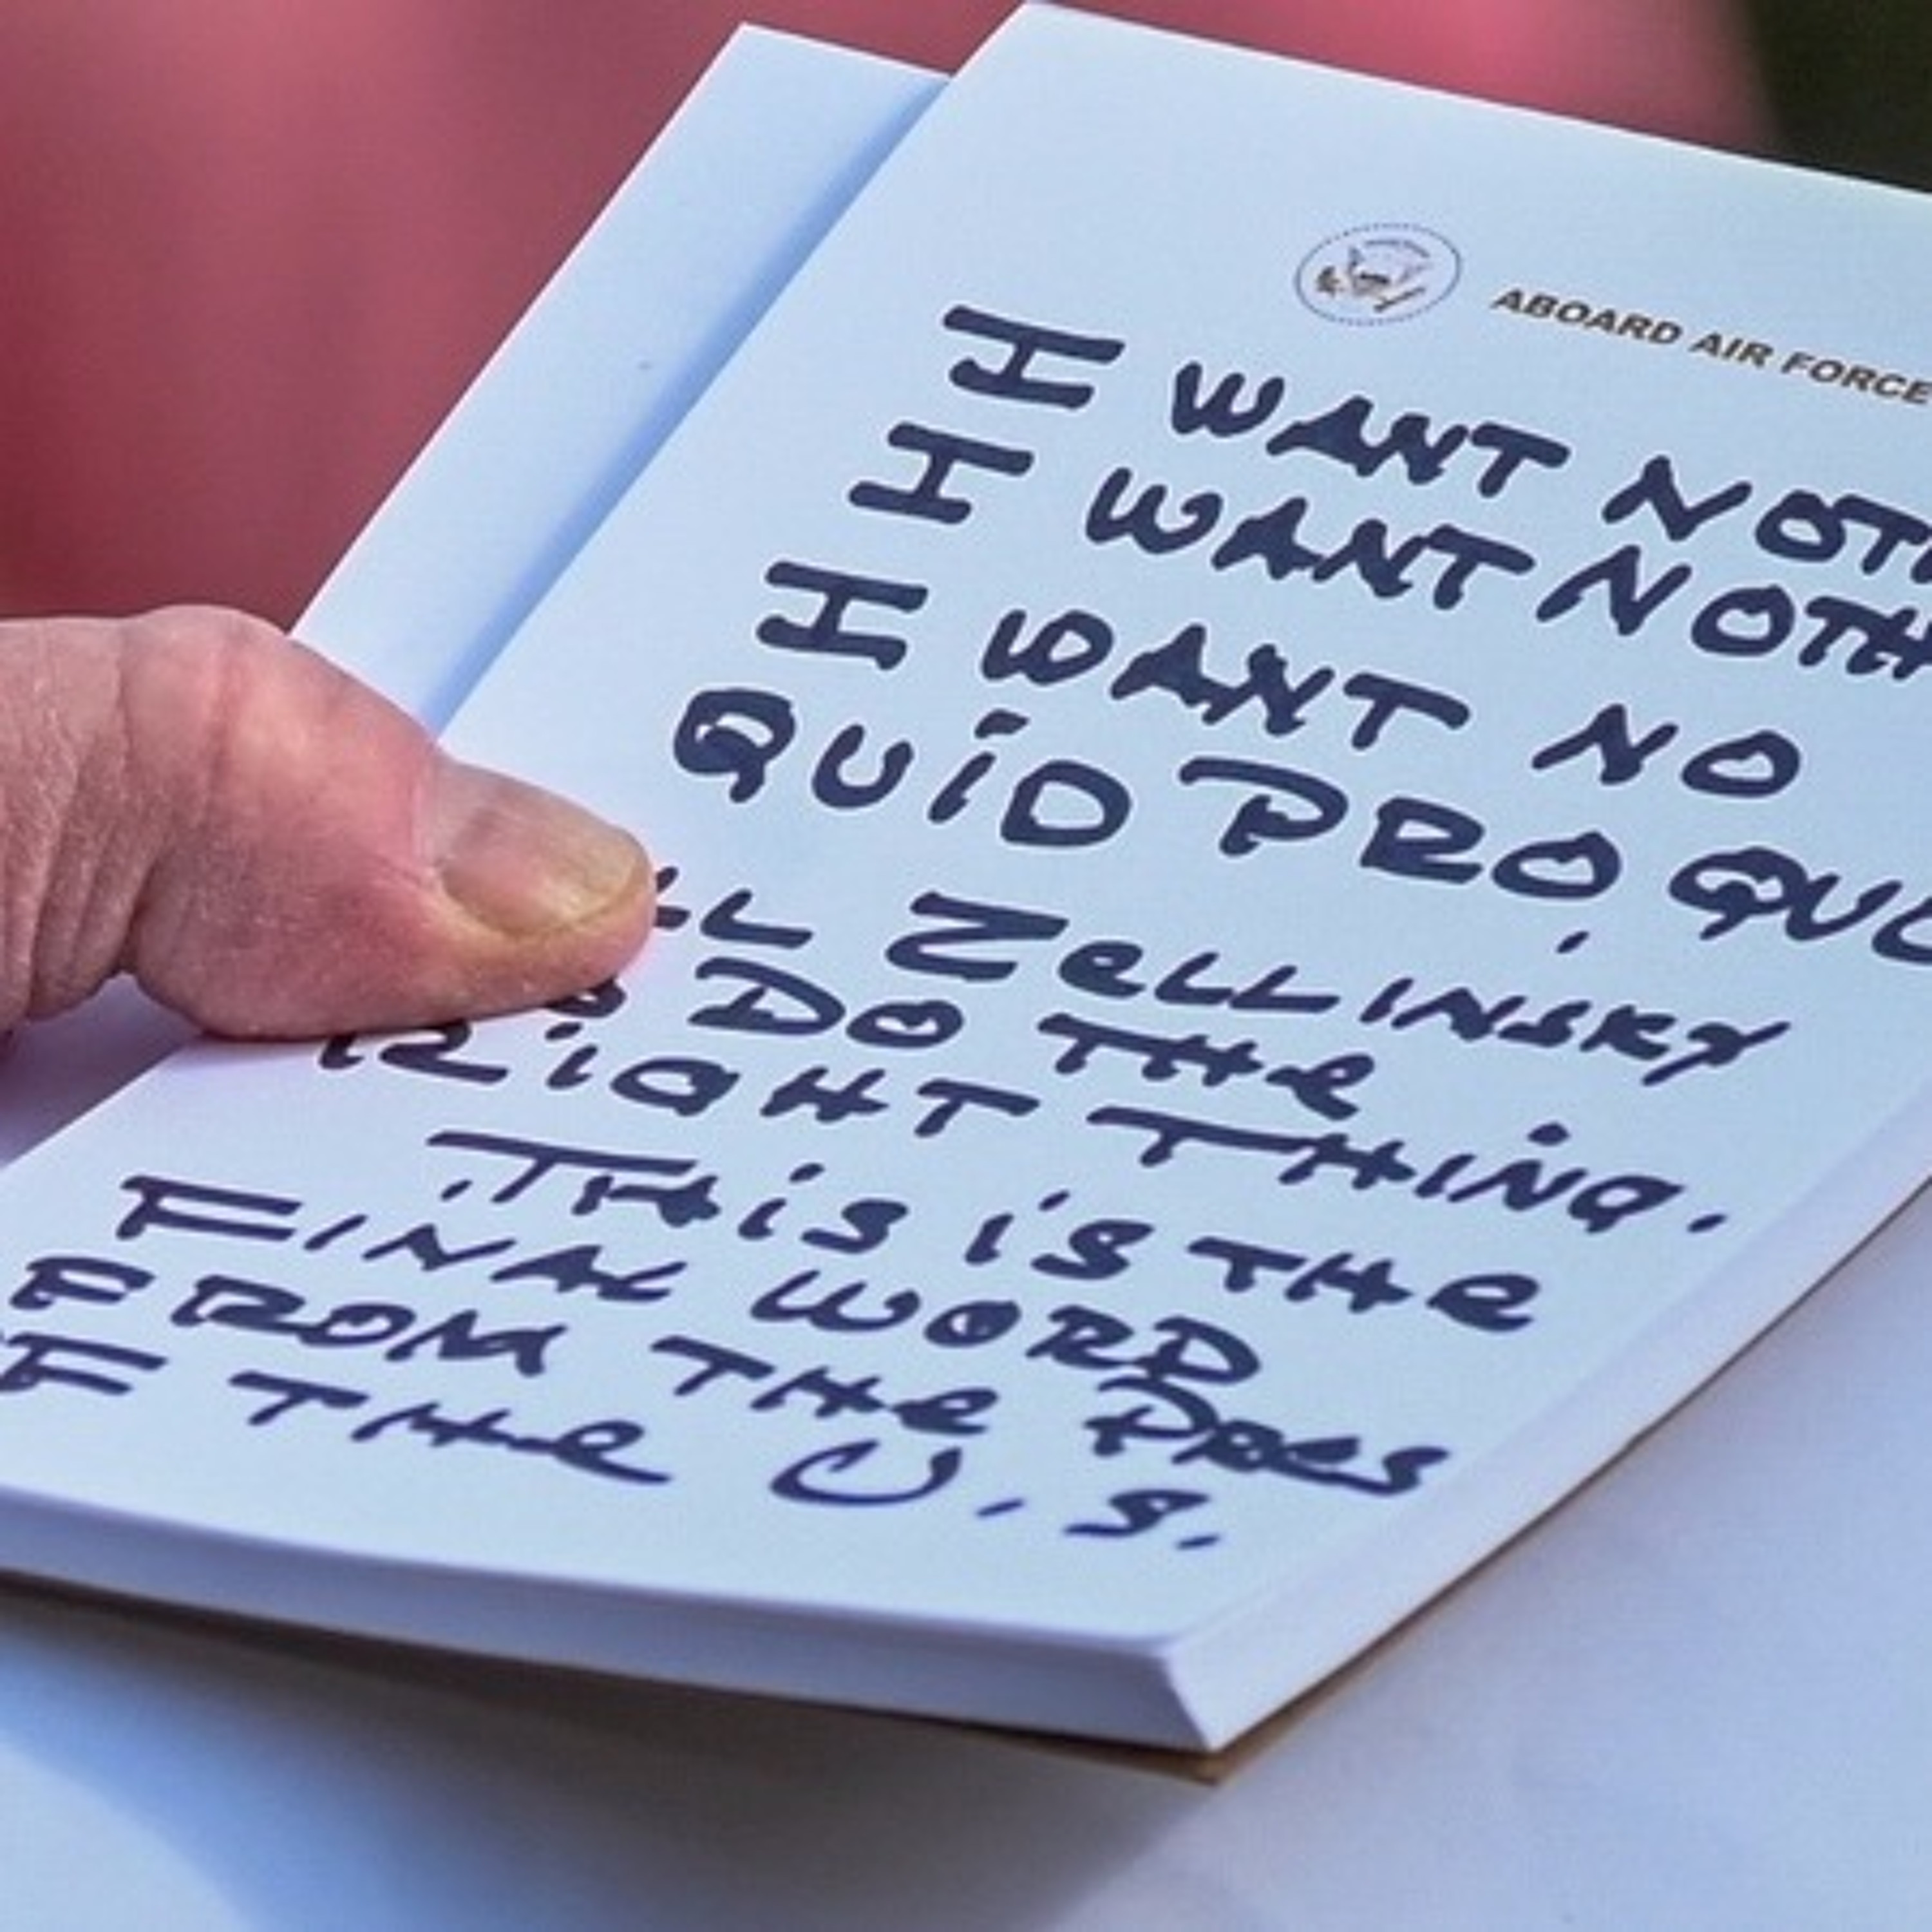 ABOARD AIR FORCE
I WANT NOTH
I WANT NOTH
I WANT NO
QUID PRO QUO
LL ZELLINSKY
O DO THE
RIGHT THING.
THIS IS THE
FINAL WORD
FROM THE PRES
OF THE U.S.